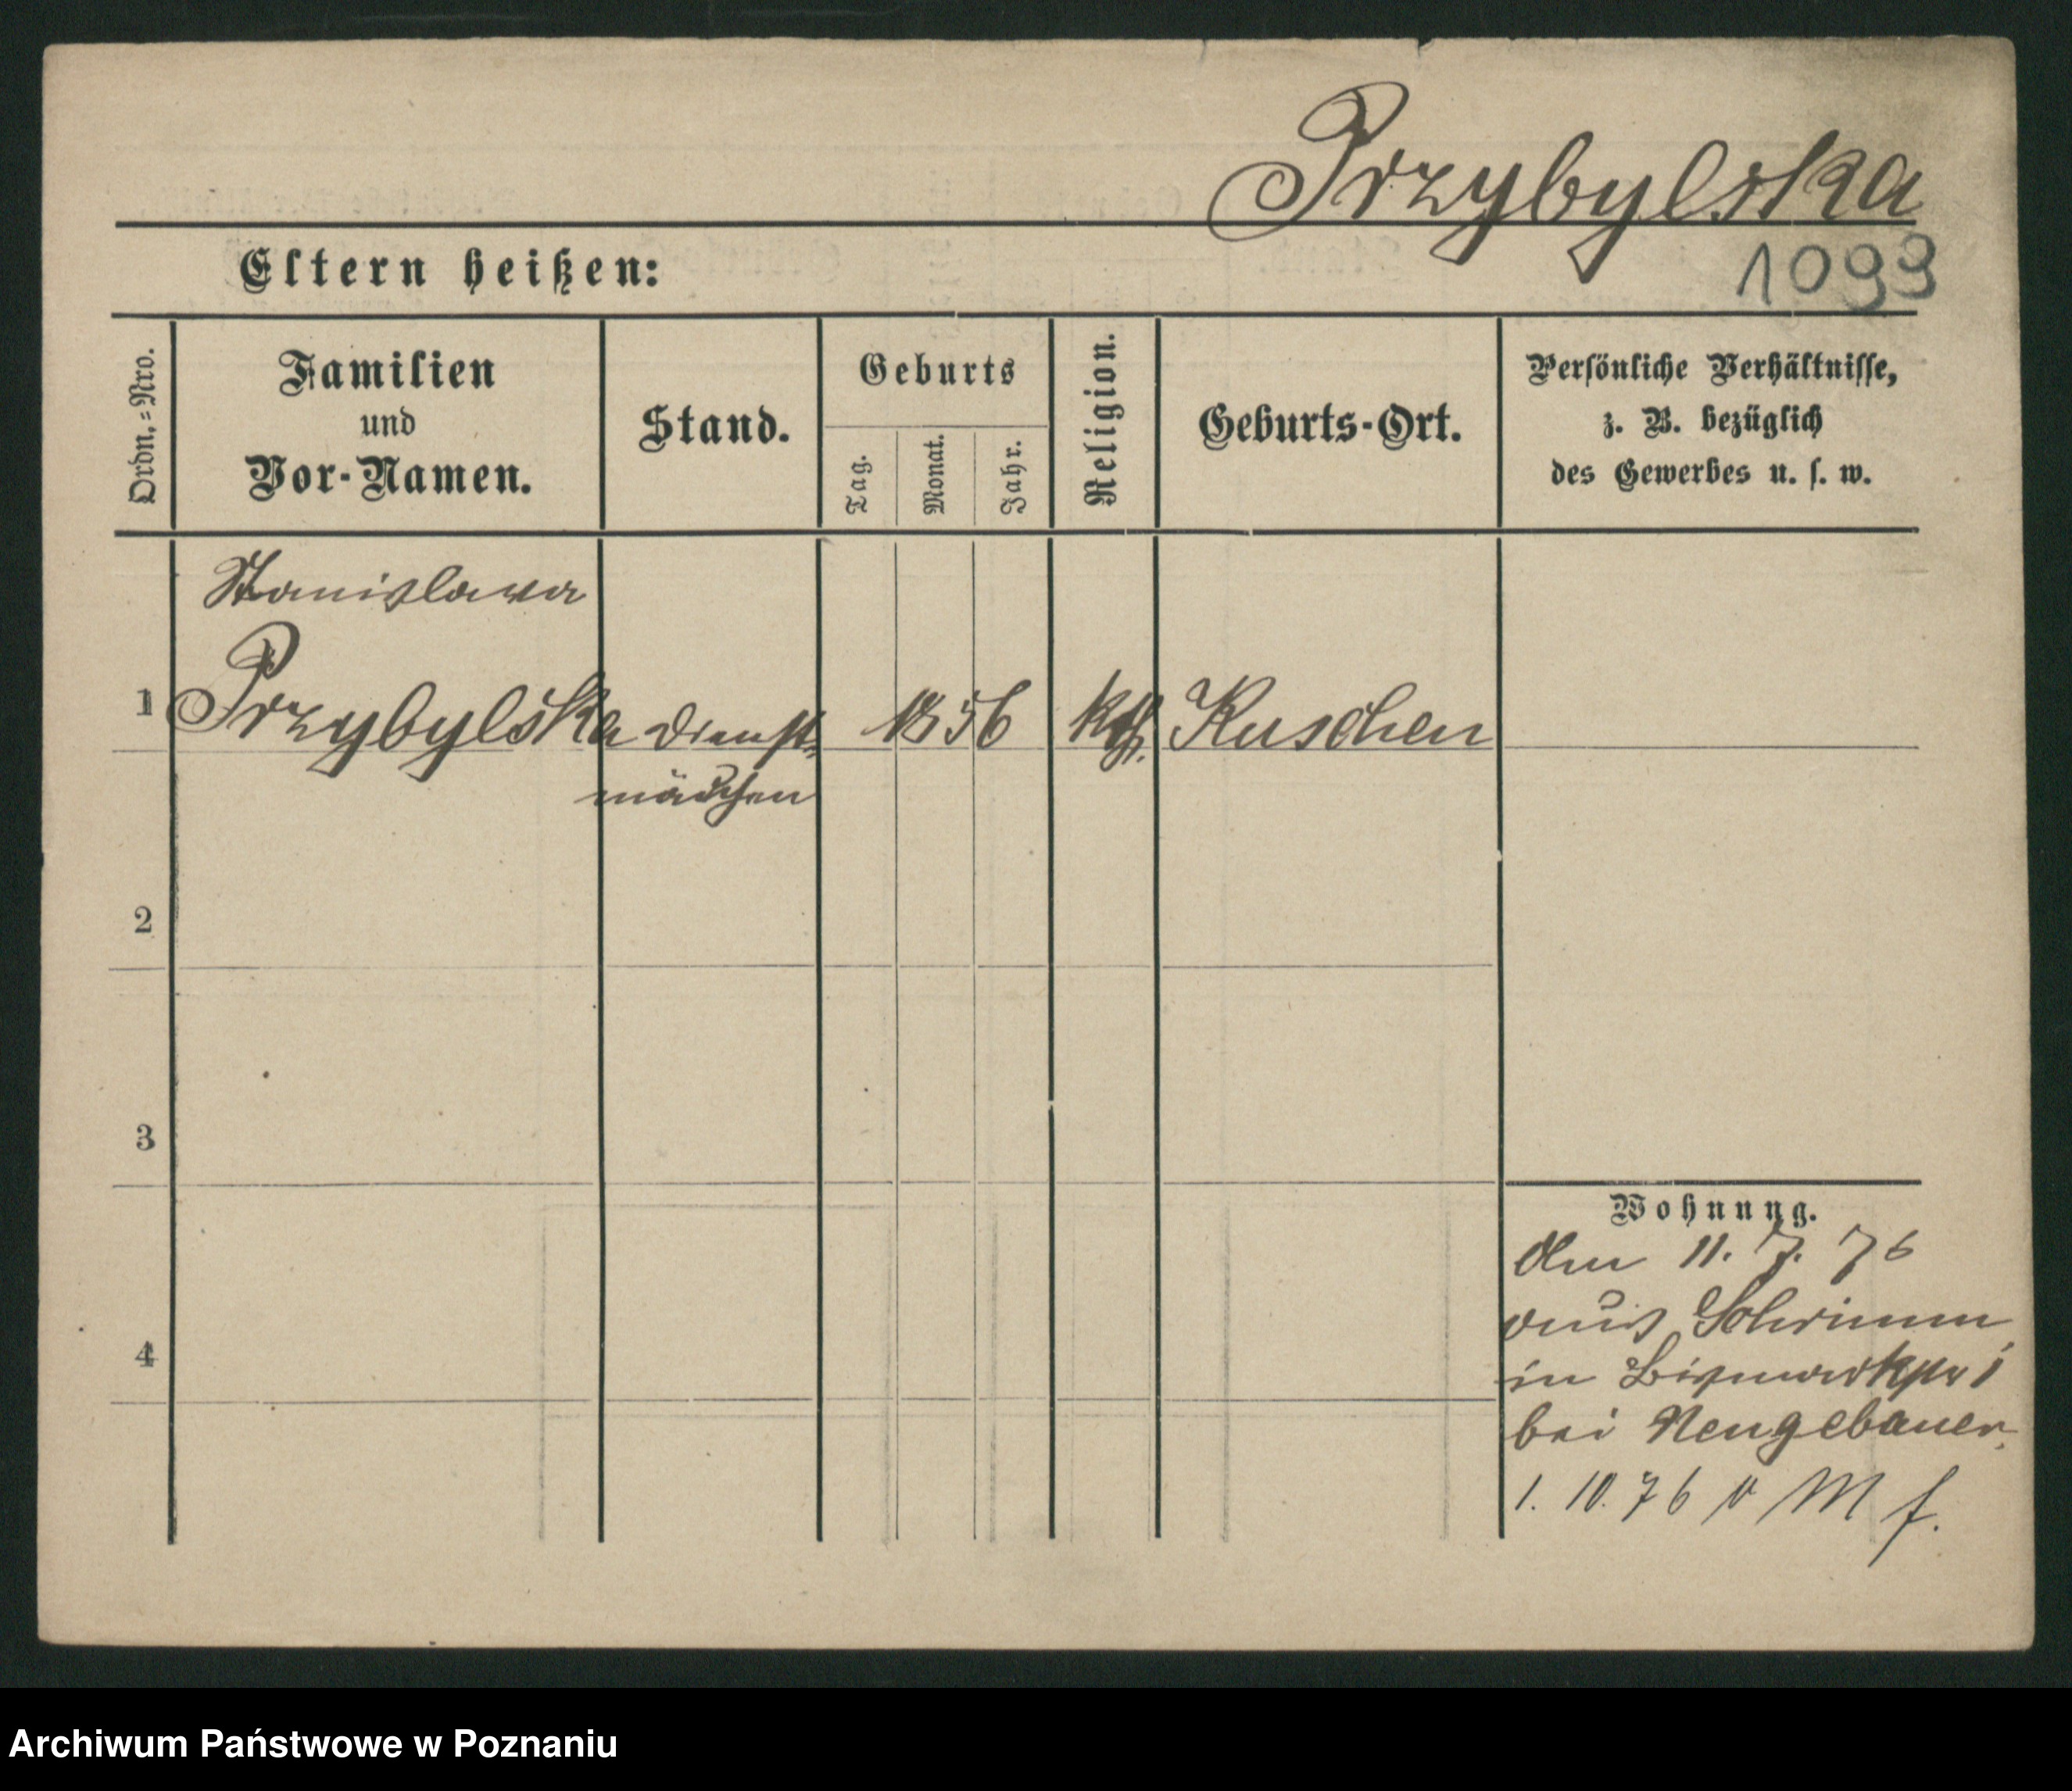 Przybylska
Eltern heißen:
1099
Ordn.=Nro.
Familien
und
Vor-Namen.
Stand.
Geburts
Tag.
Monat.
Jahr.
Religion.
Geburts-Ort.
Persönliche Verhältnisse,
z. B. bezüglich
des Gewerbes u. s. w.
Stanislawa
1 Przybylska Dienst= 1856 kth. Kuschen
mädchen
2
3
4
Wohnung.
Am 11. 7. 76
aus Schrimm
in 1
bei Neugebauer.
1. 10. 76 v M f.
Archiwum Państwowe w Poznaniu